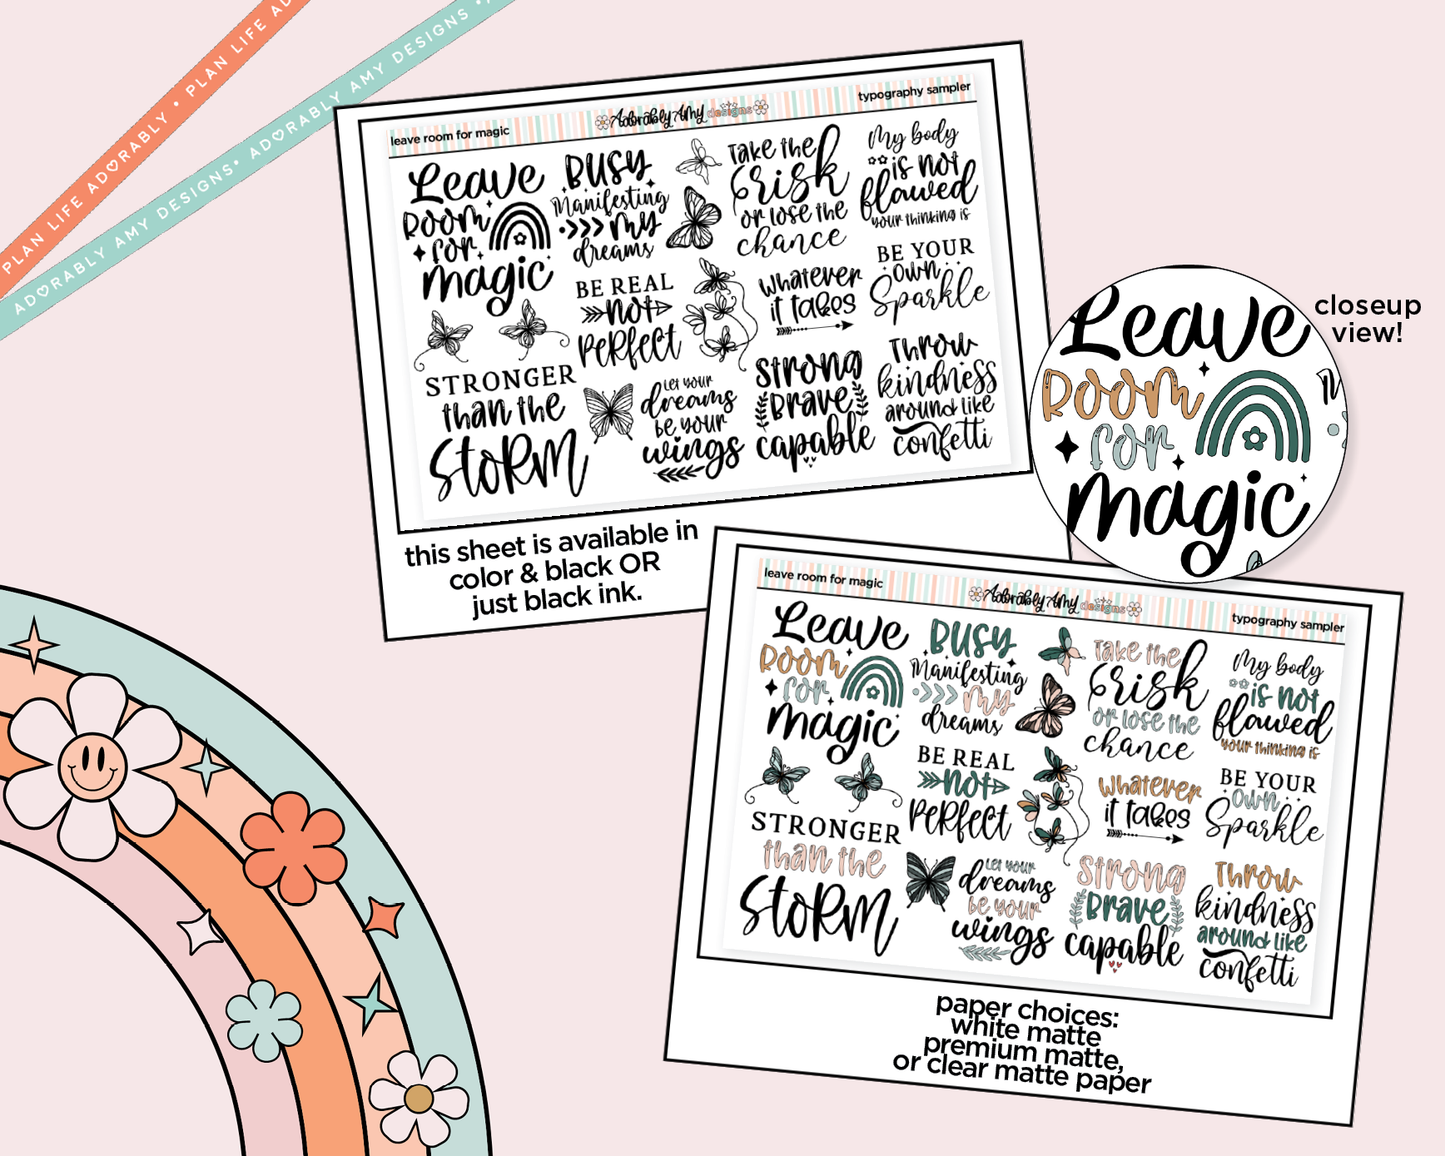 PLAN LIFE ADORABLY • PLAN LIFE AD
ADORABLY AMY DESIGNS • ADORABLY AMY DESIGNS •
leave room for magic
Adorably Amy designs
typography sampler
Leave
Room
for
magic
Busy
Manifesting
my
dreams
Take the
risk
or lose the
chance
My body
is not
flawed
your thinking is
BE REAL
not
perfect
whatever
it takes
BE YOUR
own
Sparkle
STRONGER
than the
STORM
let your
dreams
be your
wings
Strong
Brave
capable
Throw
kindness
around like
confetti
this sheet is available in
color & black OR
just black ink.
Leave
Room
for
magic
closeup
view!
leave room for magic
Adorably Amy designs
typography sampler
Leave
Room
for
magic
Busy
Manifesting
my
dreams
Take the
risk
or lose the
chance
My body
is not
flawed
your thinking is
BE REAL
not
perfect
whatever
it takes
BE YOUR
own
Sparkle
STRONGER
than the
STORM
let your
dreams
be your
wings
Strong
Brave
capable
Throw
kindness
around like
confetti
paper choices:
white matte
premium matte,
or clear matte paper